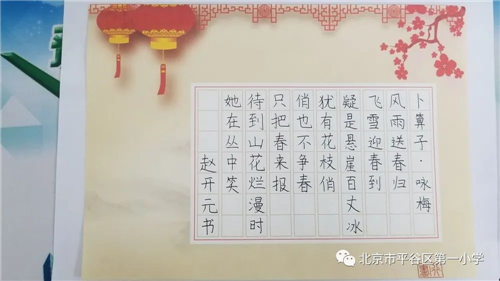 卜算子·咏梅
风雨送春归
飞雪迎春到
疑是悬崖百丈冰
犹有花枝俏
俏也不争春
只把春来报
待到山花烂漫时
她在丛中笑
赵开元书
北京市平谷区第一小学